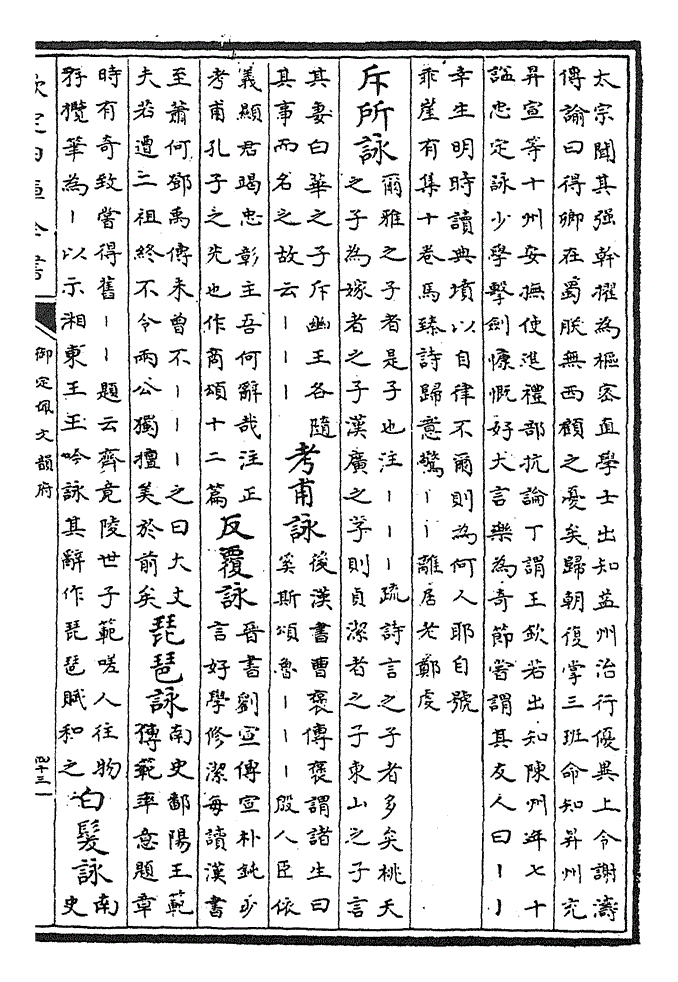 太宗聞其强幹擢為樞密直學士出知益州治行優異上令謝濤
傳諭曰得卿在蜀朕無西顧之憂矣歸朝復掌三班命知昇州充
昇宣等十州安撫使進禮部抗論丁謂王欽若出知陳州年七十
謚忠定詠少學擊劍慷慨好大言樂為奇節嘗謂其友人曰丨丨
幸生明時讀典墳以自律不爾則為何人耶自號
乖崖有集十卷馬臻詩歸意驚丨丨離居老鄭虔
斥所詠
爾雅之子者是子也注丨丨丨疏詩言之子者多矣桃夭
之子為嫁者之子漢廣之子則貞潔者之子東山之子言
其妻白華之子斥幽王各隨
其事而名之故云丨丨丨
考甫詠
後漢書曹褒傳褒謂諸生曰
奚斯頌魯丨丨丨殷人臣依
義顯君竭忠彰主吾何辭哉注正
考甫孔子之先也作商頌十二篇
反覆詠
晉書劉宣傳宣朴鈍少
言好學修潔每讀漢書
至蕭何鄧禹傳未曾不丨丨丨之曰大丈
夫若遭二祖終不令兩公獨擅美於前矣
琵琶詠
南史鄱陽王範
傳範率意題章
時有奇致嘗得舊丨丨題云齊竟陵世子範嗟人往物
存攬筆為丨以示湘東王王吟詠其辭作琵琶賦和之
白髮詠
南
史
欽定四庫全書
御定佩文韻府
四十三